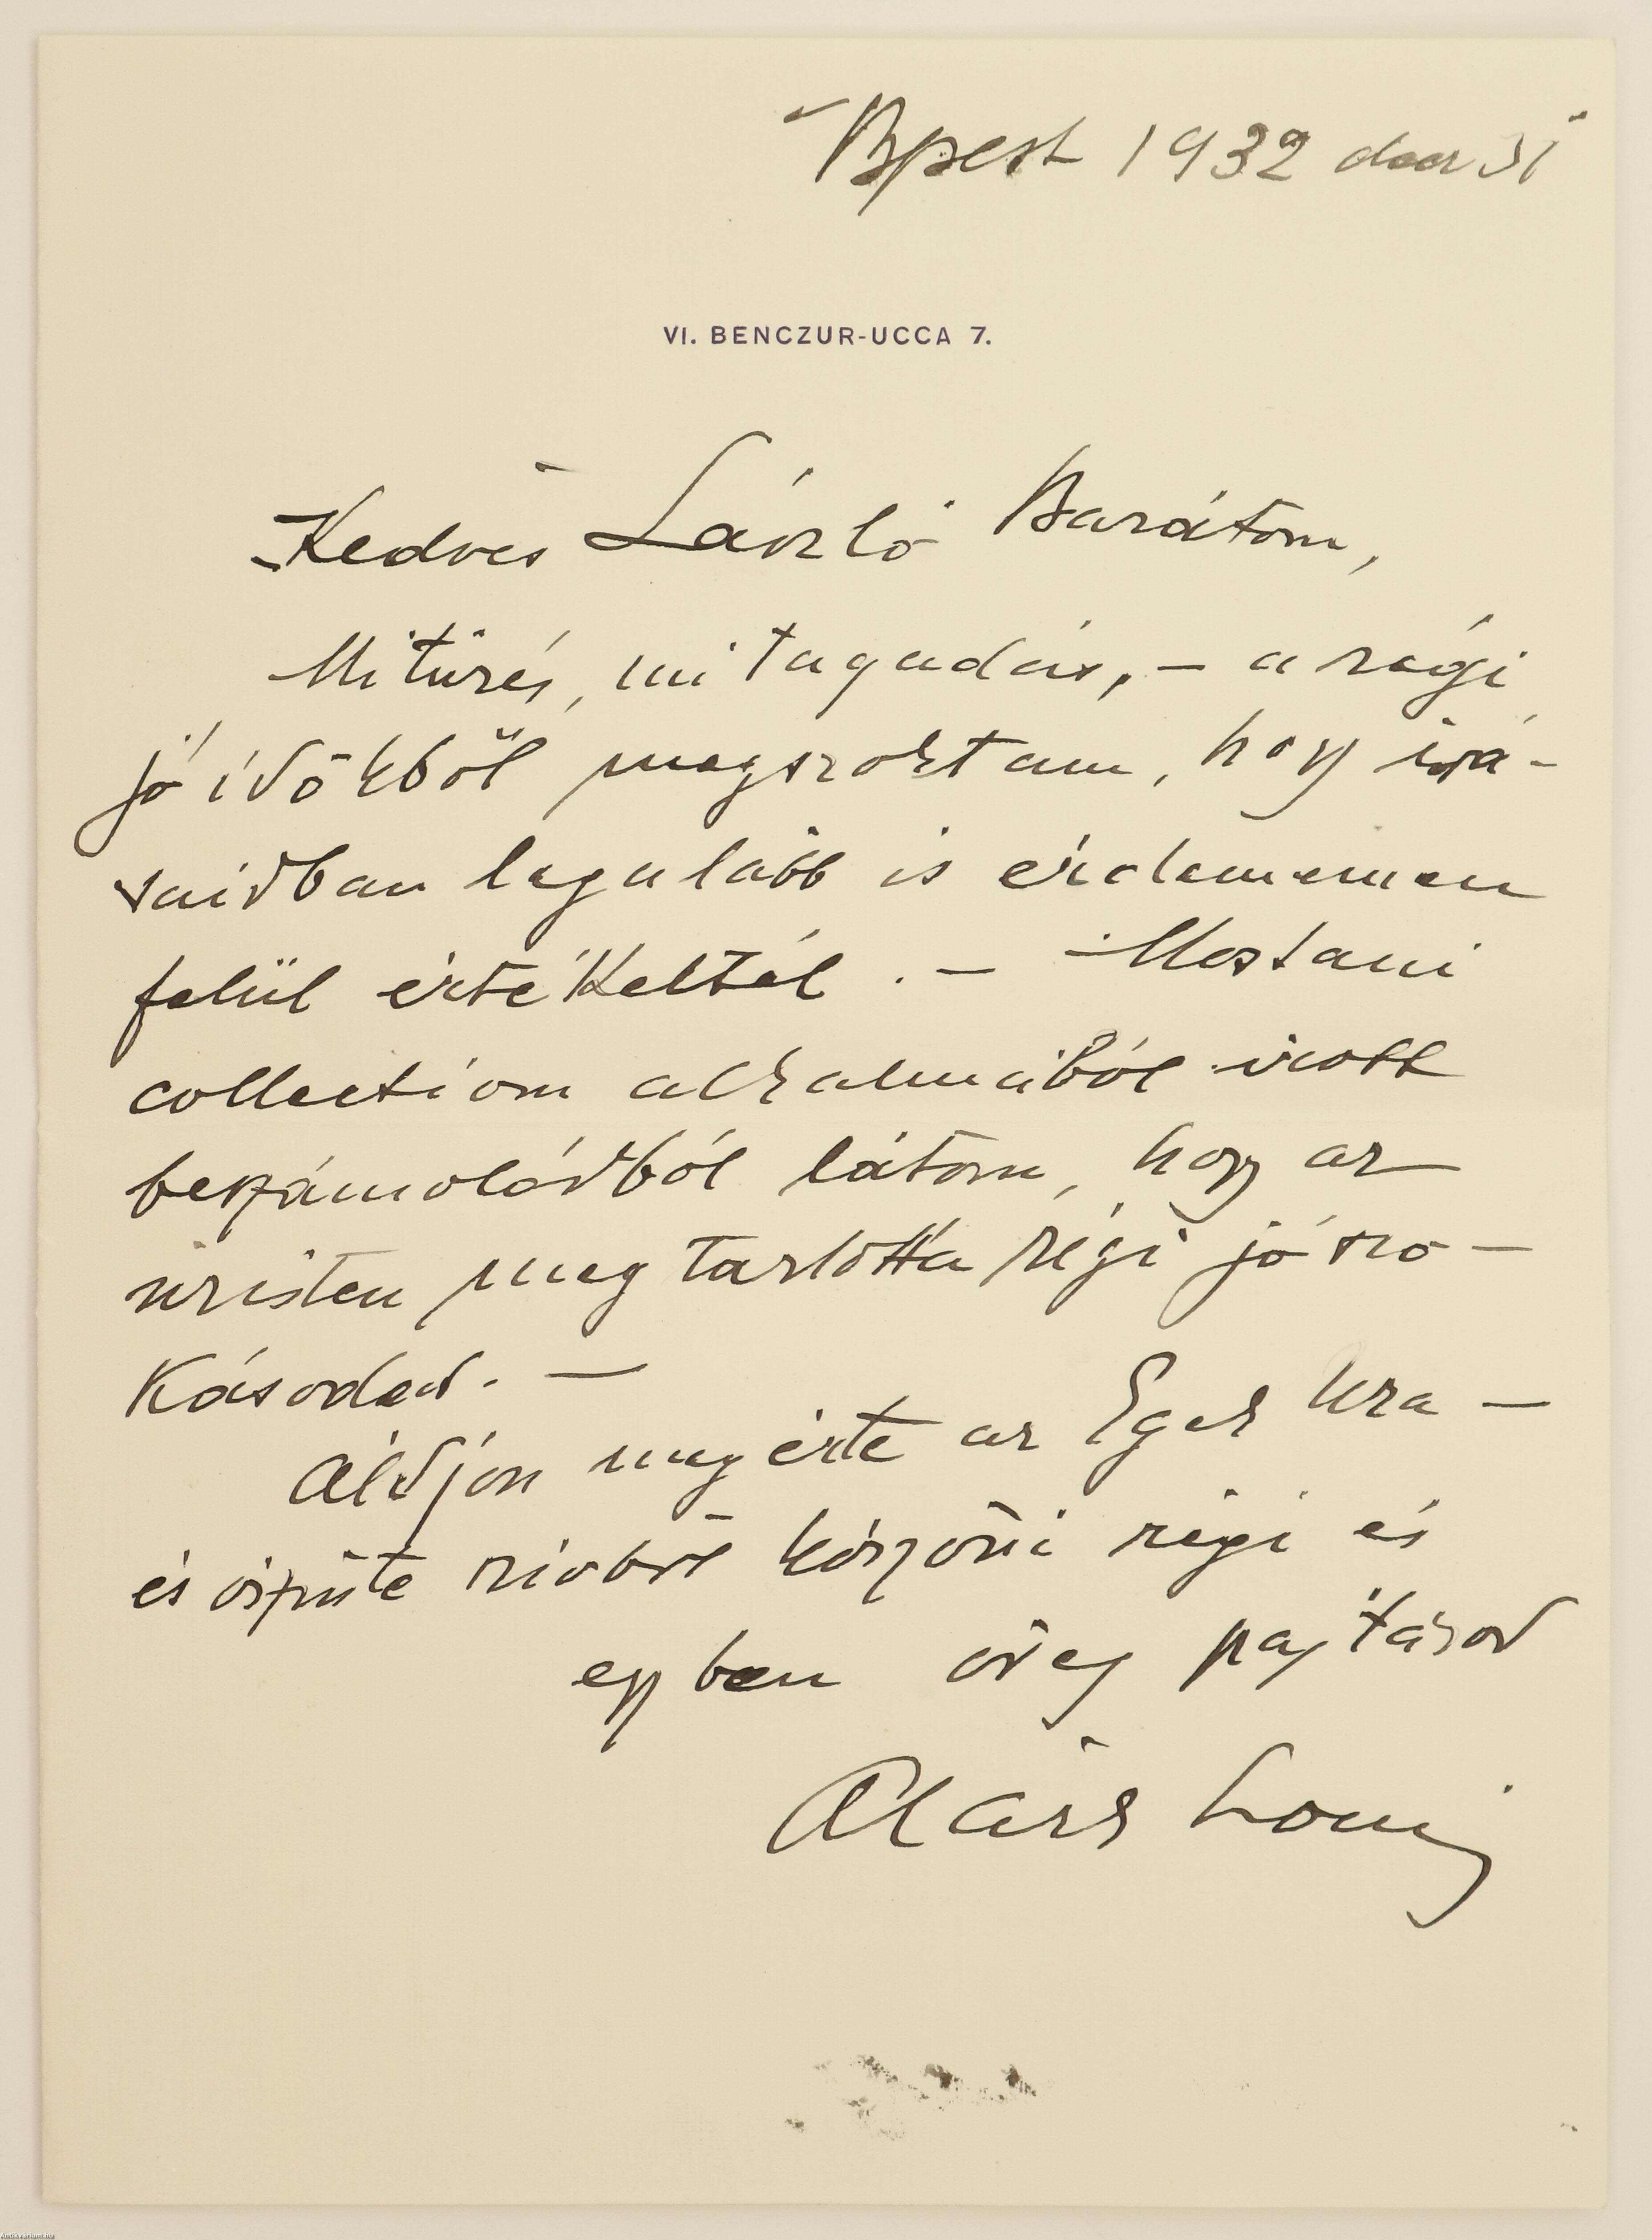 Bpest 1932 dec 31
VI. BENCZUR-UCCA 7.
Kedves László Barátom,
Mitürés, mi tagadás, – a régi
jó időkből megszoktam, hogy irá-
saidban legalább is érdememen
felül értékeltél. – Mostani
collectiom alkalmából irott
beszámolódból látom, hogy az
uristen megtartotta régi jó szo-
kásodat. –
Áldjon meg érte az Egek Ura –
és őszinte szivből köszönti régi és
egyben öreg pajtásod
Antikvarium.hu